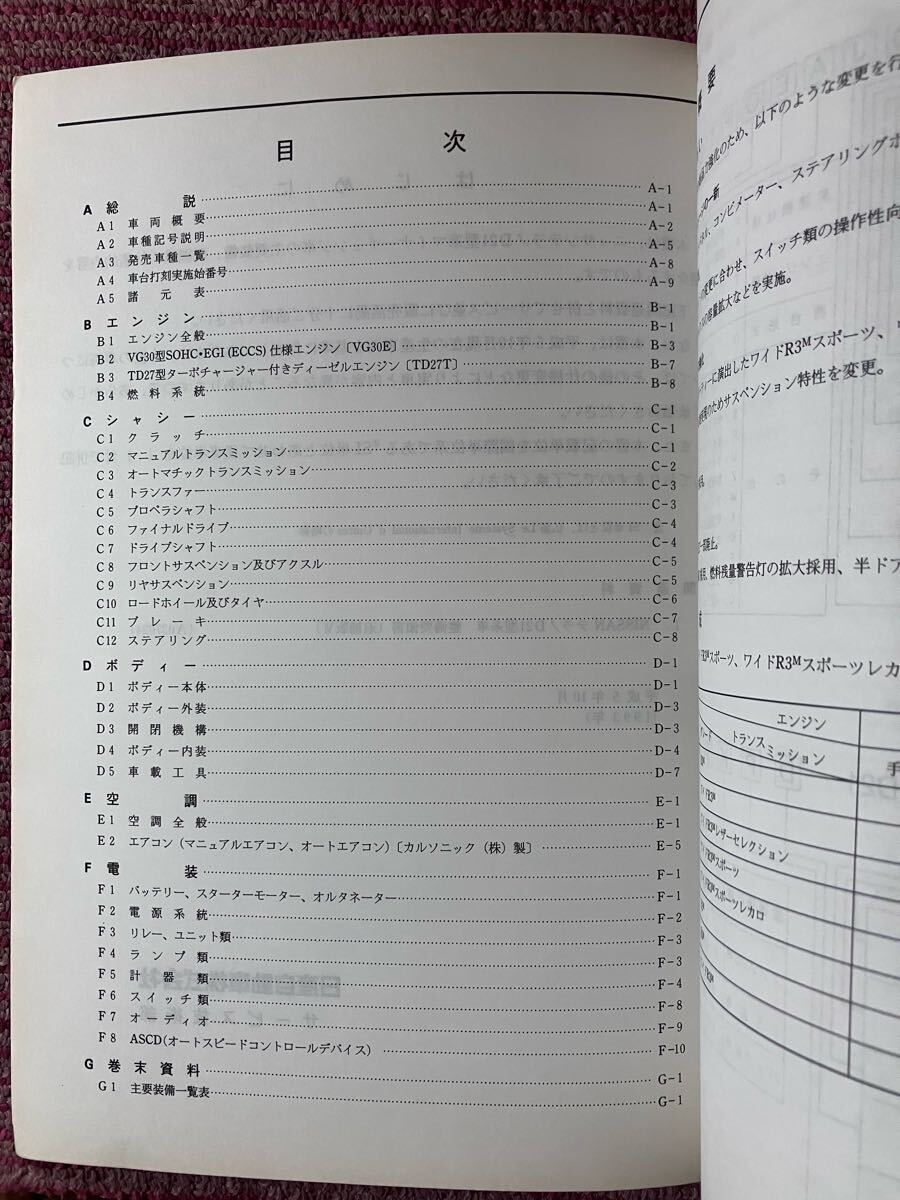 目 次
A 総 説 A-1
A1 車両概要 A-1
A2 車種記号説明 A-2
A3 発売車種一覧 A-5
A4 車台打刻実施始番号 A-8
A5 諸元表 A-9
B エンジン B-1
B1 エンジン全般 B-1
B2 VG30型SOHC・EGI (ECCS) 仕様エンジン〔VG30E〕 B-3
B3 TD27型ターボチャージャー付きディーゼルエンジン〔TD27T〕 B-7
B4 燃料系統 B-8
C シャシー C-1
C1 クラッチ C-1
C2 マニュアルトランスミッション C-1
C3 オートマチックトランスミッション C-2
C4 トランスファー C-3
C5 プロペラシャフト C-3
C6 ファイナルドライブ C-4
C7 ドライブシャフト C-4
C8 フロントサスペンション及びアクスル C-5
C9 リヤサスペンション C-5
C10 ロードホイール及びタイヤ C-6
C11 ブレーキ C-7
C12 ステアリング C-8
D ボディー D-1
D1 ボディー本体 D-1
D2 ボディー外装 D-3
D3 開閉機構 D-3
D4 ボディー内装 D-4
D5 車載工具 D-7
E 空 調 E-1
E1 空調全般 E-1
E2 エアコン (マニュアルエアコン、オートエアコン)〔カルソニック (株) 製〕 E-5
F 電 装 F-1
F1 バッテリー、スターターモーター、オルタネーター F-1
F2 電源系統 F-2
F3 リレー、ユニット類 F-3
F4 ランプ類 F-3
F5 計器類 F-4
F6 スイッチ類 F-8
F7 オーディオ F-9
F8 ASCD(オートスピードコントロールデバイス) F-10
G 巻末資料 G-1
G1 主要装備一覧表 G-1
要
強化のため、以下のような変更を行
の一新
コンビメーター、ステアリングホ
変更に合わせ、スイッチ類の操作性向
容量拡大などを実施。
ティーに演出したワイドR3Mスポーツ、
のためサスペンション特性を変更。
一部廃止。
燃料残量警告灯の拡大採用、半ドア
スポーツ、ワイドR3Mスポーツレカ
エンジン
トランスミッション
手
R3M
R3Mレザーセレクション
R3Mスポーツ
R3Mスポーツレカロ
R3M